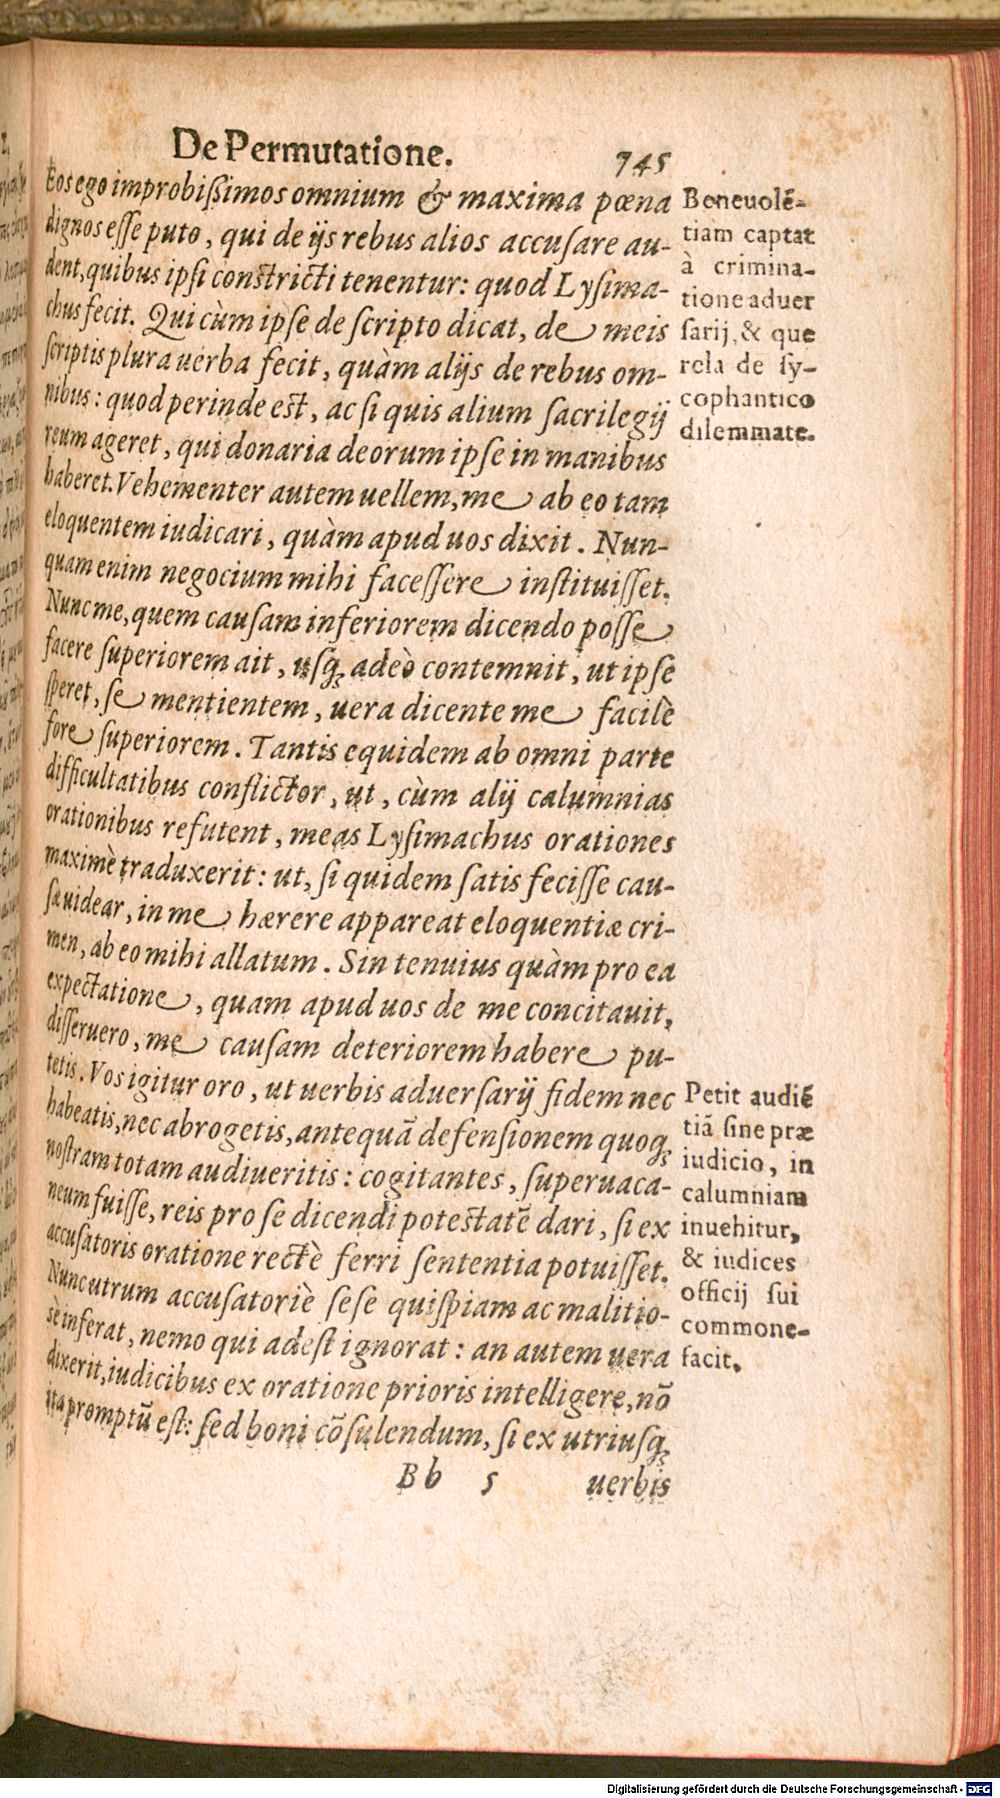 De Permutatione.
745
Eos ego improbißimos omnium & maxima pœna
dignos esse puto, qui de ijs rebus alios accusare au-
dent, quibus ipsi constricti tenentur: quod Lysima-
chus fecit. Qui cùm ipse de scripto dicat, de meis
scriptis plura uerba fecit, quàm alijs de rebus om-
nibus: quod perinde est, ac si quis alium sacrilegij
reum ageret, qui donaria deorum ipse in manibus
haberet. Vehementer autem uellem, me ab eo tam
eloquentem iudicari, quàm apud uos dixit. Nun-
quam enim negocium mihi facessere instituisset.
Nunc me, quem causam inferiorem dicendo posse
facere superiorem ait, usq; adeò contemnit, ut ipse
speret, se mentientem, uera dicente me facilè
fore superiorem. Tantis equidem ab omni parte
difficultatibus conflictor, ut, cùm alij calumnias
orationibus refutent, meas Lysimachus orationes
maximè traduxerit: ut, si quidem satis fecisse cau-
sæ uidear, in me hærere appareat eloquentiæ cri-
men, ab eo mihi allatum. Sin tenuius quàm pro ea
expectatione, quam apud uos de me concitauit,
disseruero, me causam deteriorem habere pu-
tetis. Vos igitur oro, ut uerbis aduersarij fidem nec
habeatis, nec abrogetis, antequā defensionem quoq;
nostram totam audiueritis: cogitantes, superuaca-
neum fuisse, reis pro se dicendi potestatē dari, si ex
accusatoris oratione rectè ferri sententia potuisset.
Nunc utrum accusatoriè sese quispiam ac malitio-
sè inferat, nemo qui adest ignorat: an autem uera
dixerit, iudicibus ex oratione prioris intelligere, nō
ita promptū est: sed boni cōsulendum, si ex utriusq;
Bb 5 uerbis
Beneuolē-
tiam captat
à crimina-
tione aduer
sarij, & que
rela de sy-
cophantico
dilemmate.
Petit audiē
tiā sine præ
iudicio, in
calumniam
inuehitur,
& iudices
officij sui
commone-
facit.
Digitalisierung gefördert durch die Deutsche Forschungsgemeinschaft - DFG